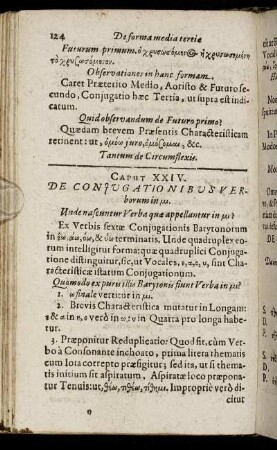 124 De forma media tertia
Futurum primum. ὁ χρυσωσόμενος ἡ χρυσωσομένη
τὸ χρυσωσόμενον.
Observationes in hanc formam.
Caret Præterito Medio, Aoristo & Futuro se-
cundo, Conjugatio hæc Tertia, ut supra est indi-
catum.
Quid observandum de Futuro primo?
Quædam brevem Præsentis Characteristicam
retinent: ut, ὀμόω juro, ὀμόσομαι, &c.
Tantum de Circumflexis.
CAPUT XXIV.
DE CONJUGATIONIBUS VER-
borum in μι.
Unde nascuntur Verba quæ appellantur in μι?
Ex Verbis sextæ Conjugationis Barytonorum
in έω, άω, όω, & ύω terminatis. Unde quadruplex eo-
rum intelligitur forma: quæ quadruplici Conjugatio-
ne distinguitur, sic, ut Vocales, ε, α, ο, υ, sint Cha-
racteristicæ istarum Conjugationum.
Quomodo ex puris illis Barytonis fiunt Verba in μι?
1. ω finale vertitur in μι.
2. Brevis Characteristica mutatur in Longam:
ε & α in η, ο verò in ω, υ in Quarta pro longa habe-
tur.
3. Præponitur Reduplicatio: Quod sit, cùm Ver-
bo à Consonante inchoato, prima litera thematis
cum Iota correpto præfigitur; sed ita, ut si thema-
tis initium sit aspiratum, Aspiratæ loco præpona-
tur Tenuis: ut, θέω, τιθέω, τίθημι. Impropriè verò di-
citur